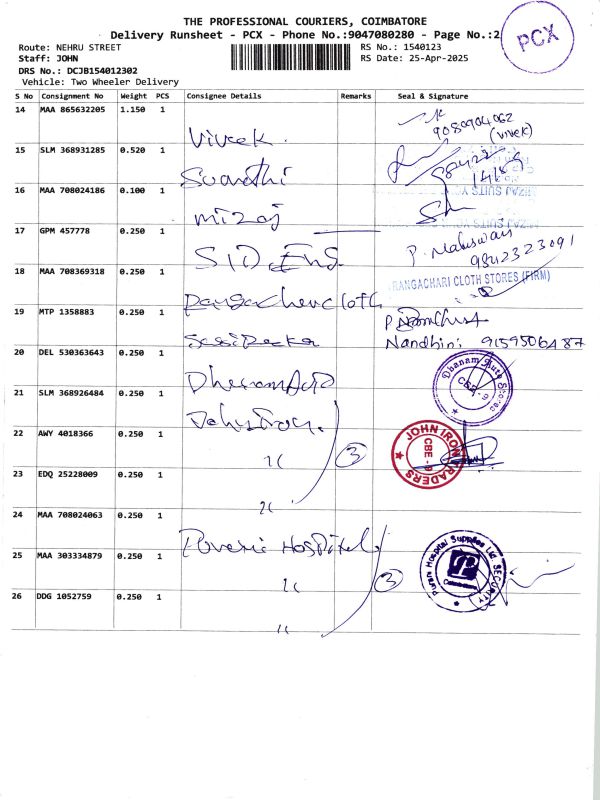 THE PROFESSIONAL COURIERS, COIMBATORE
Delivery Runsheet - PCX - Phone No.:9047080280 - Page No.:2
PCX
Route: NEHRU STREET
RS No.: 1540123
Staff: JOHN
RS Date: 25-Apr-2025
DRS No.: DCJB154012302
Vehicle: Two Wheeler Delivery
S No Consignment No Weight PCS Consignee Details Remarks Seal & Signature
14 MAA 865632205 1.150 1 Vivek. 9080904062
(vivek)
15 SLM 368931285 0.520 1 Swathi
16 MAA 708024186 0.100 1 mizaj
MIZAJ SUITS
17 GPM 457778 0.250 1 SID. Eng. P. Maheswari
9842323091
18 MAA 708369318 0.250 1 RANGACHARI CLOTH STORES (FIRM)
19 MTP 1358883 0.250 1
Nandhini: 9159506487
20 DEL 530363643 0.250 1 Dhanam Auto Stores
CBE-9
21 SLM 368926484 0.250 1
22 AWY 4018366 0.250 1 3 JOHN IRON TRADERS
CBE-9
23 EDQ 25228009 0.250 1
24 MAA 708024063 0.250 1 Hospital
25 MAA 303334879 0.250 1 3 Hospital Supplies SECURITY
26 DDG 1052759 0.250 1